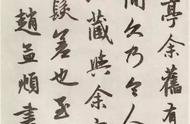 亭余舊有
間久乃令人
藏與余
髮差也至
趙孟頫書